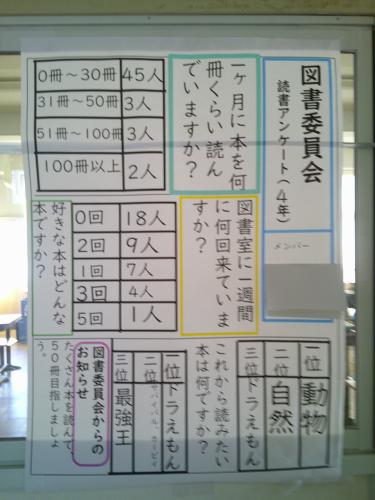 図書委員会
読書アンケート(4年)
メンバー
一ヶ月に本を何
冊くらい読ん
でいますか?
0冊～30冊 45人
31冊～50冊 3人
51冊～100冊 3人
100冊以上 2人
図書室に一週間
に何回来ていま
すか?
0回 18人
2回 9人
1回 7人
3回 4人
5回 1人
好きな本はどんな
本ですか?
一位 動物
二位 自然
三位 ドラえもん
これから読みたい
本は何ですか?
一位 ドラえもん
二位
三位 最強王
図書委員会からの
お知らせ
たくさん本を読んで、
50冊目指しましょ
う。